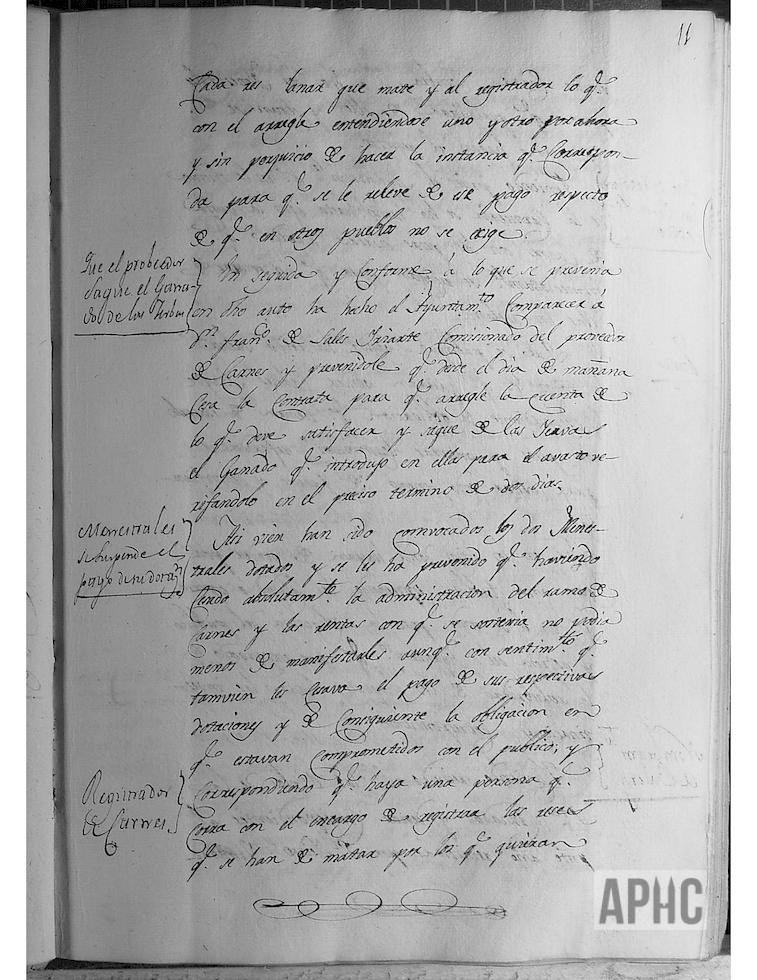 11
Cada res lanar que mate y al registrador lo q.e
con el arregle entendiendose uno y otro por ahora
y sin perjuicio de hacer la instancia q.e Correspon-
da para q.e se le releve de ese pago respecto
de q.e en otros pueblos no se exige.
Que el probeedor
Saque el Gana-
do de las Yerbas
En seguida y Conforme á lo que se prevenia
en dho auto ha hecho el Ayuntam.to Comparecer á
D.n Fran.co de Sales Yriarte Comisionado del proveedor
de Carnes y prevenidole q.e desde el dia de mañana
Cesa la Contrata para q.e arregle la Cuenta de
lo q.e deve satisfacer y saque de las Yervas
el Ganado q.e introdujo en ellas para el avasto ve-
rifandolo en el preciso termino de dos dias.
Menestrales
se suspende el
pago de su dotaz.n
Asi vien han sido convocados los dos Menes-
trales dotados y se les ha prevenido q.e haviendo
Cesado absolutam.te la administracion del ramo de
Carnes y las rentas con q.e se sostenia no podia
menos de manifestarles aunq.e con sentim.to q.e
tamvien les Cesava el pago de sus respectivas
dotaciones y de Consiguiente la obligacion en
q.e estavan Comprometidos con el publico; y
Registrador
de Carnes.
Correspondiendo q.e haya una persona q.e
Corra con el encargo de registrar las reses
q.e se han de matar por los q.e quieran
APHC